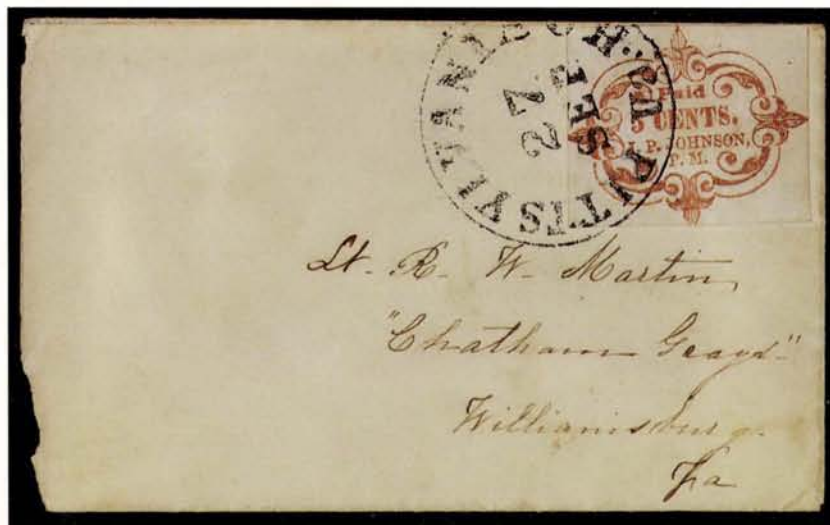 PITTSYLVANIA C.H. Va.
SEP
27
Paid
5 CENTS.
J. P. JOHNSON,
P. M.
Lt. R. W. Martin,
"Chatham Grays"
Williamsburg
Va